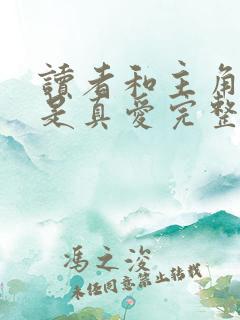 讀者和主角
是真愛完整
馮之浚
未經同意禁止轉載